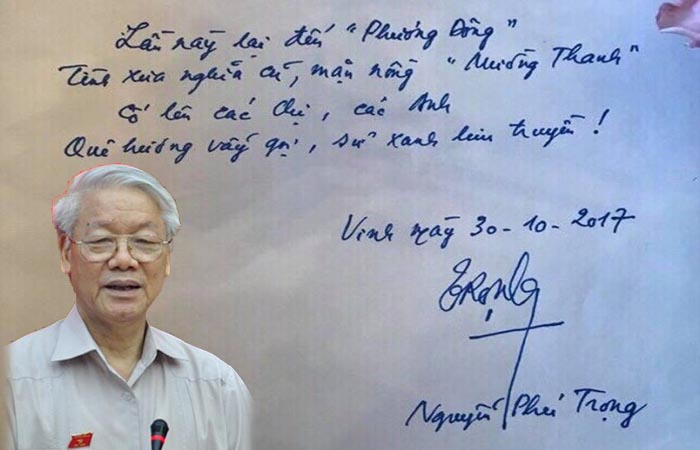 Lần này lại đến "Phương Đông"
Tình xưa nghĩa cũ, mặn nồng "Mường Thanh"
Cố lên các Chị, các Anh
Quê hương vẫy gọi, sử xanh lưu truyền!
Vinh ngày 30-10-2017
TRỌNG
Nguyễn Phú Trọng